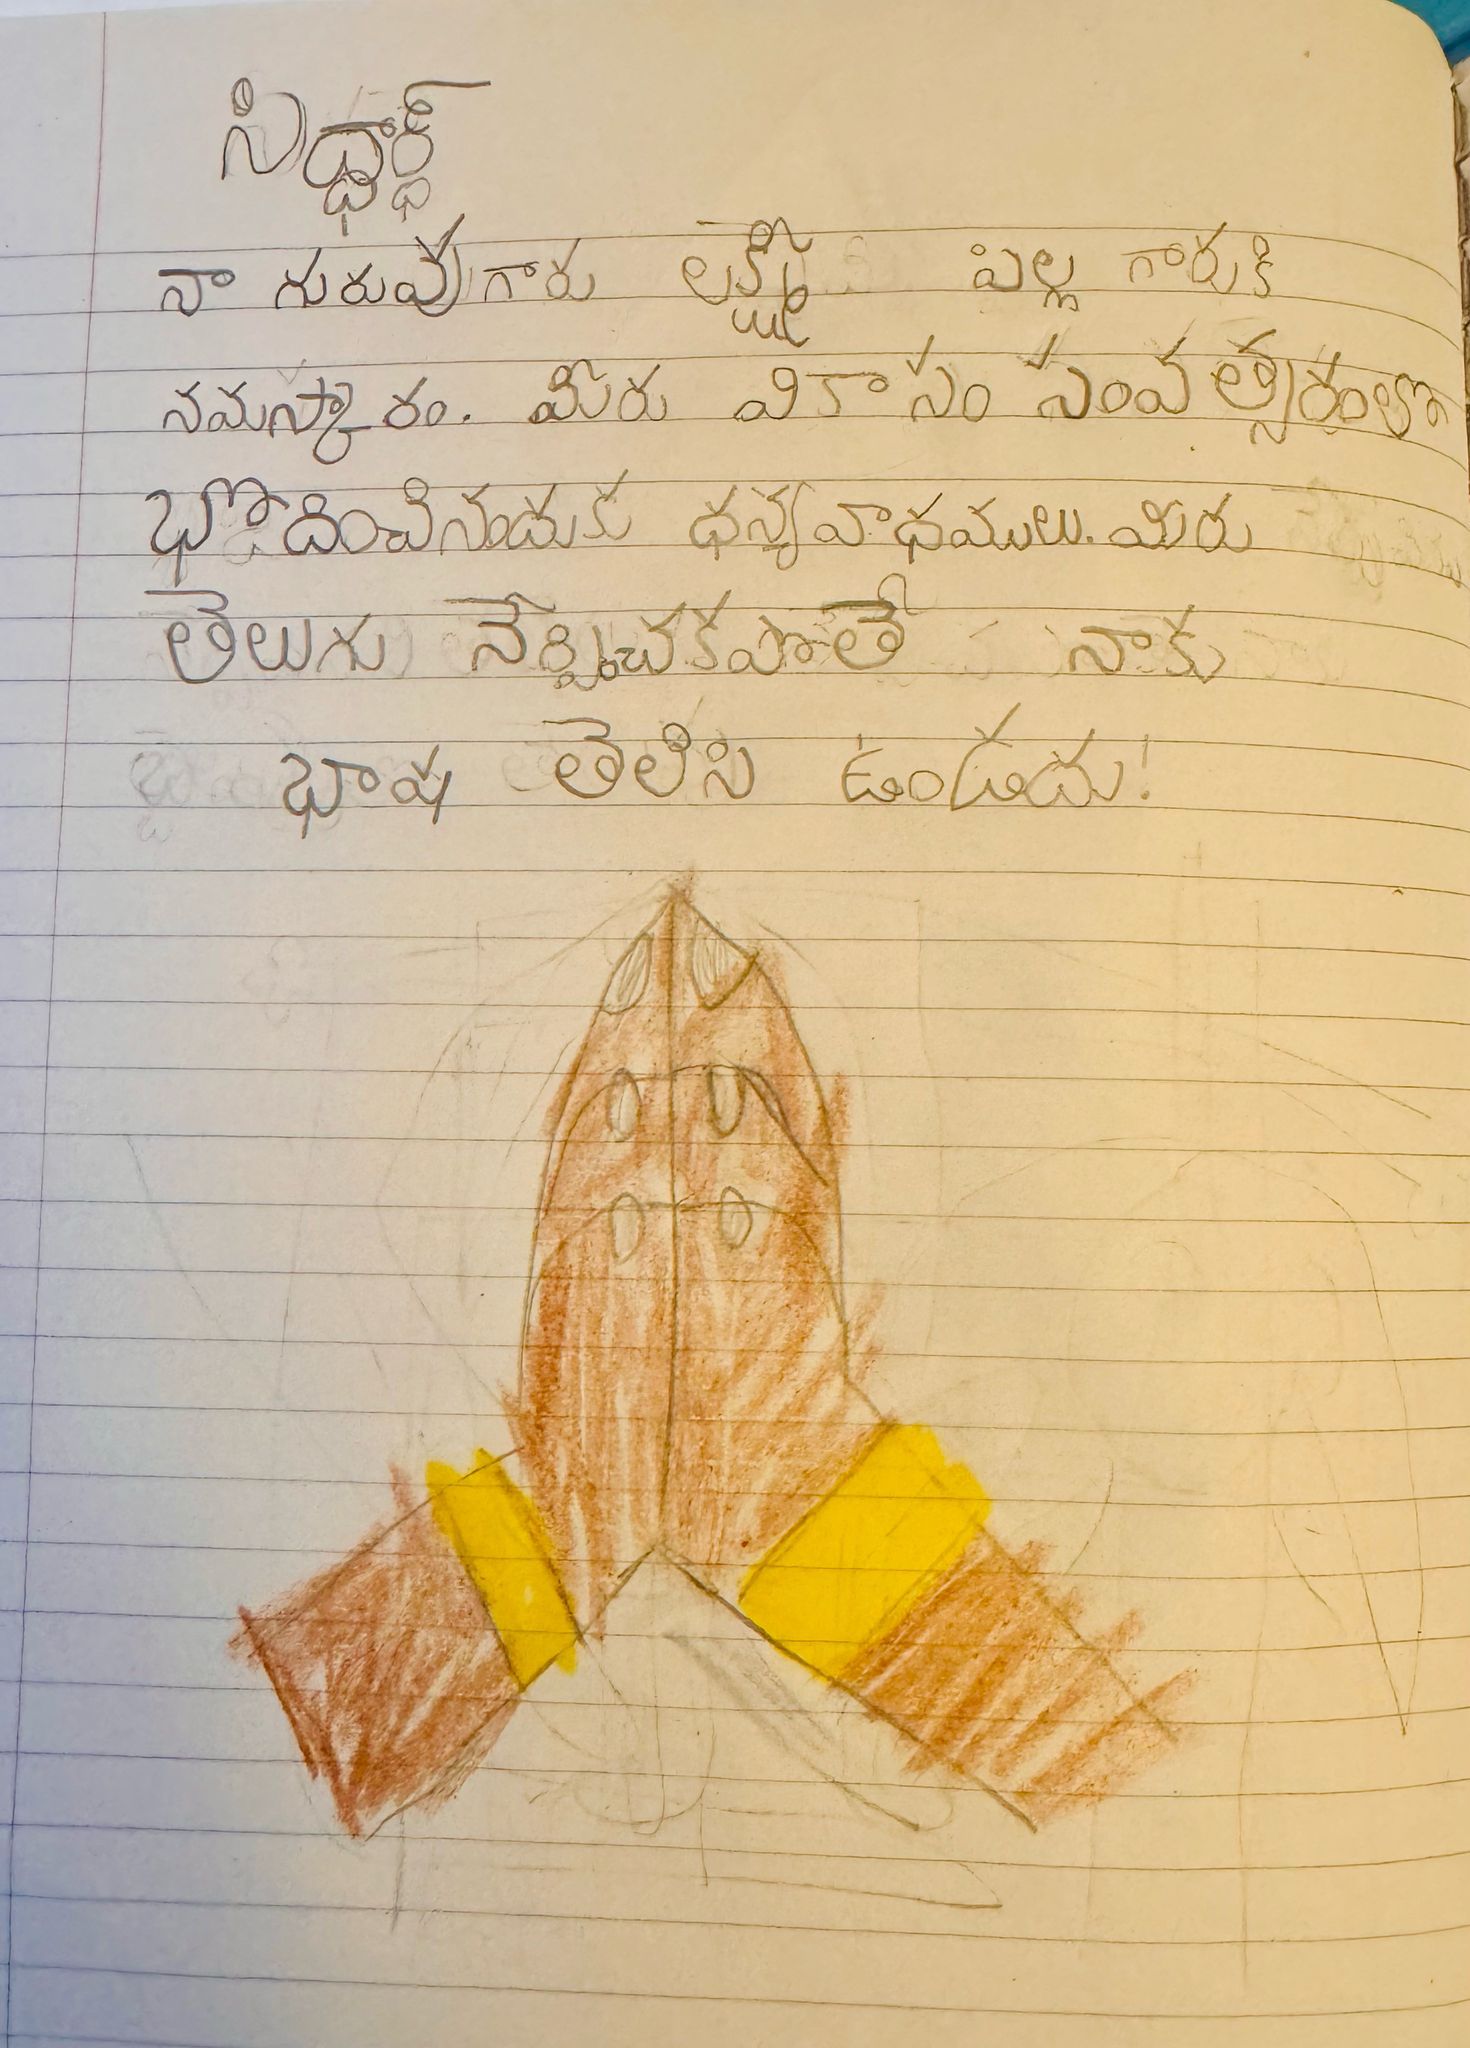 సిద్ధార్థ్
నా గురువుగారు లక్ష్మీ పిల్ల గారుకి
నమస్కారం. మీరు వికాసం సంవత్సరంలొ
భొదించినందుకు ధన్యవాధములు. మీరు
తెలుగు నేర్పించకపొతే నాకు
భాష తెలిసి ఉండదు!